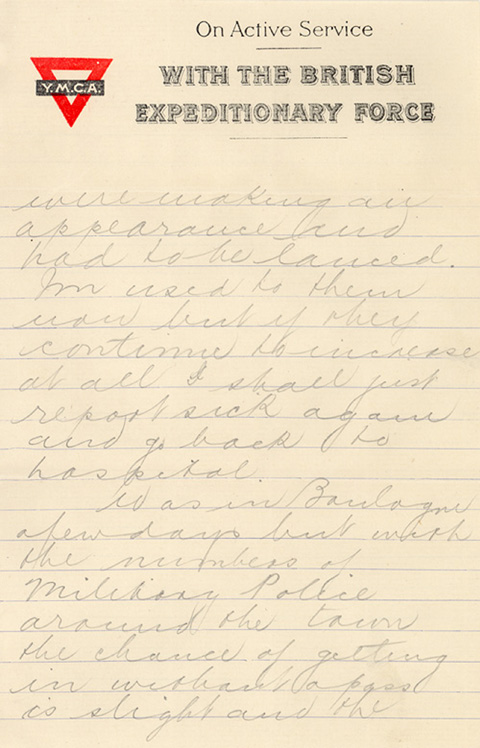 On Active Service
WITH THE BRITISH
EXPEDITIONARY FORCE
Y.M.C.A.
were making an
appearance and
had to be lanced.
Im used to them
now but if they
continue to increase
at all I shall just
report sick again
and go back to
hospital.
Was in Boulogne
a few days but with
the numbers of
Military Police
around the town
the chance of getting
in without a pass
is slight and the